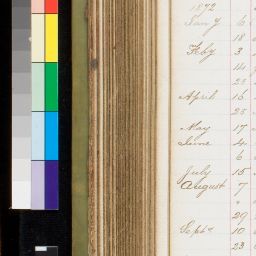 1872
Jany 6
18
Feby 3
14
25
April 16
25
May 17
June 4
6
July 15
August 7
"
29
Septr 10
23